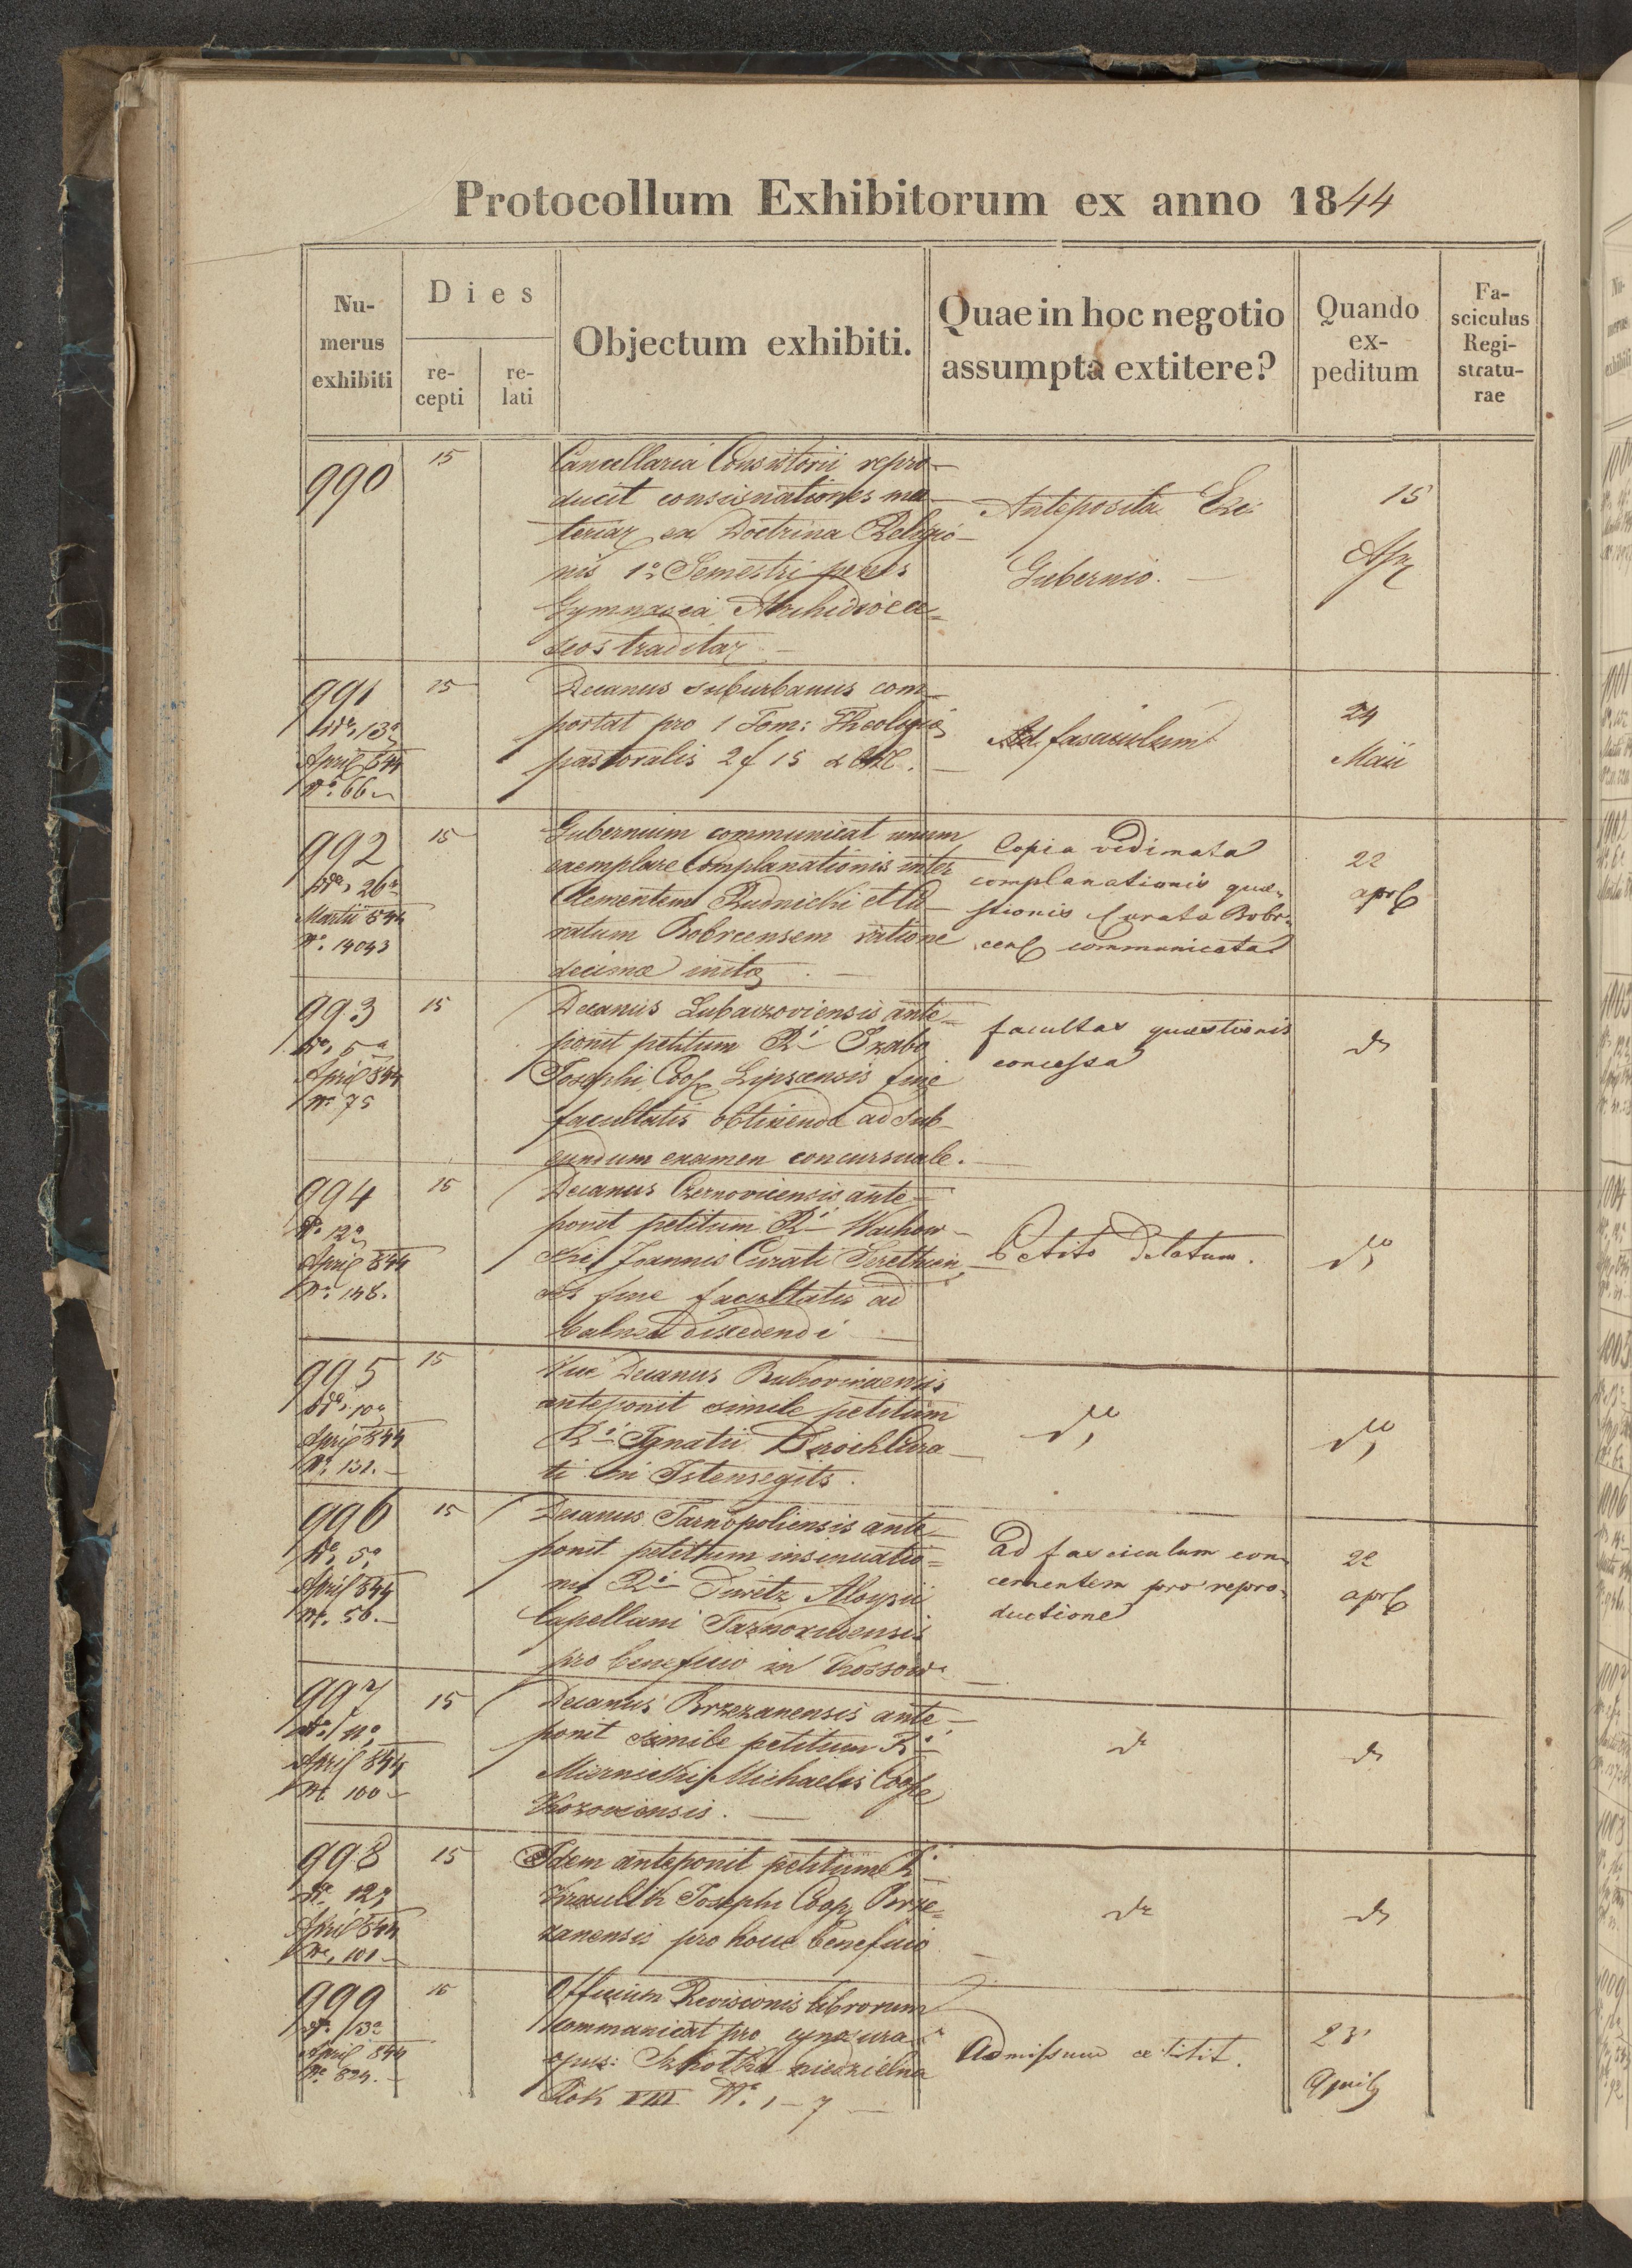 Protocollum Exhibitorum ex anno 1844
Nu-
merus
exhibiti
Dies
re-
cepti
re-
lati
Objectum exhibiti.
Quae in hoc negotio
assumpta extitere?
Quando
ex-
peditum
Fa-
sciculus
Regi-
stratu-
rae
990
15
Cancellaria Consistorii repro-
ducit consignationes ma-
teriar ex Doctrina Religio-
nis 1o Semestri penes
Gymnasia Archidioece-
seos traditar
Anteposita Exc.
Gubernio.
15
Apr
991
de 13a
April 844
No. 66
15
Decanus suburbanus com-
portat pro 1 Tom: Theologiae
pastoralis 2 f 15 x CM.
Ad fasciculum
24
Maii
992
de 26a
Martii 844
No. 14043
15
Gubernium communicat unum
exemplare Complanationis inter
Clementem Rudnicki et Cu-
ratum Bobrcensem ratione
decimae initae
Copia vidimata
complanationis quae-
stionis Curato Bobr-
cens communicata
22
apr
993
de 5a
April 844
No 75
15
Decanus Lubaczoviensis ante-
ponit petitum Ri Szabo
Josephi Coop Lipscensis fine
facultatis obtinendae ad sub-
eundum examen concursuale.
facultas quaestionis
concessa
do
994
de 12a
April 844
No. 148.
15
Decanus Czernovicensis ante-
ponit petitum Ri Wachow-
ski Joannis Curati Serethen-
sis fine facultatis ad
balnea discedendi
Petito delatum.
do
995
de 10a
April 844
No. 131.
15
Vice Decanus Bukovinaensis
anteponit simile petitum
Ri Ignatii Cura-
ti in Istensegits.
do
do
996
de 5a
April 844
No. 56.
15
Decanus Tarnopoliensis ante-
ponit petitum insinuatio-
nis Ri Aloysii
Capellani Tarnorudensis
pro beneficio in Kossow
ad fasciculum con-
cernentem pro repro-
ductione
22
apr
997
de 11a
April 844
No 100
15
Decanus Brzezanensis ante-
ponit simile petitum Ri
Miernicki Michaelis Coop
Kozoviensis.
do
do
998
de 12a
April 844
No. 101
15
Idem anteponit petitum R
Josephi Coop Brze-
zanensis pro hocce beneficio
do
do
999
de 13a
April 844
No 824.
15
Officium Revisionis librorum
communicat pro cynosura
opus: Szkołka niedzielna
Rok VIII No. 1-7
Admissum extitit.
23
April